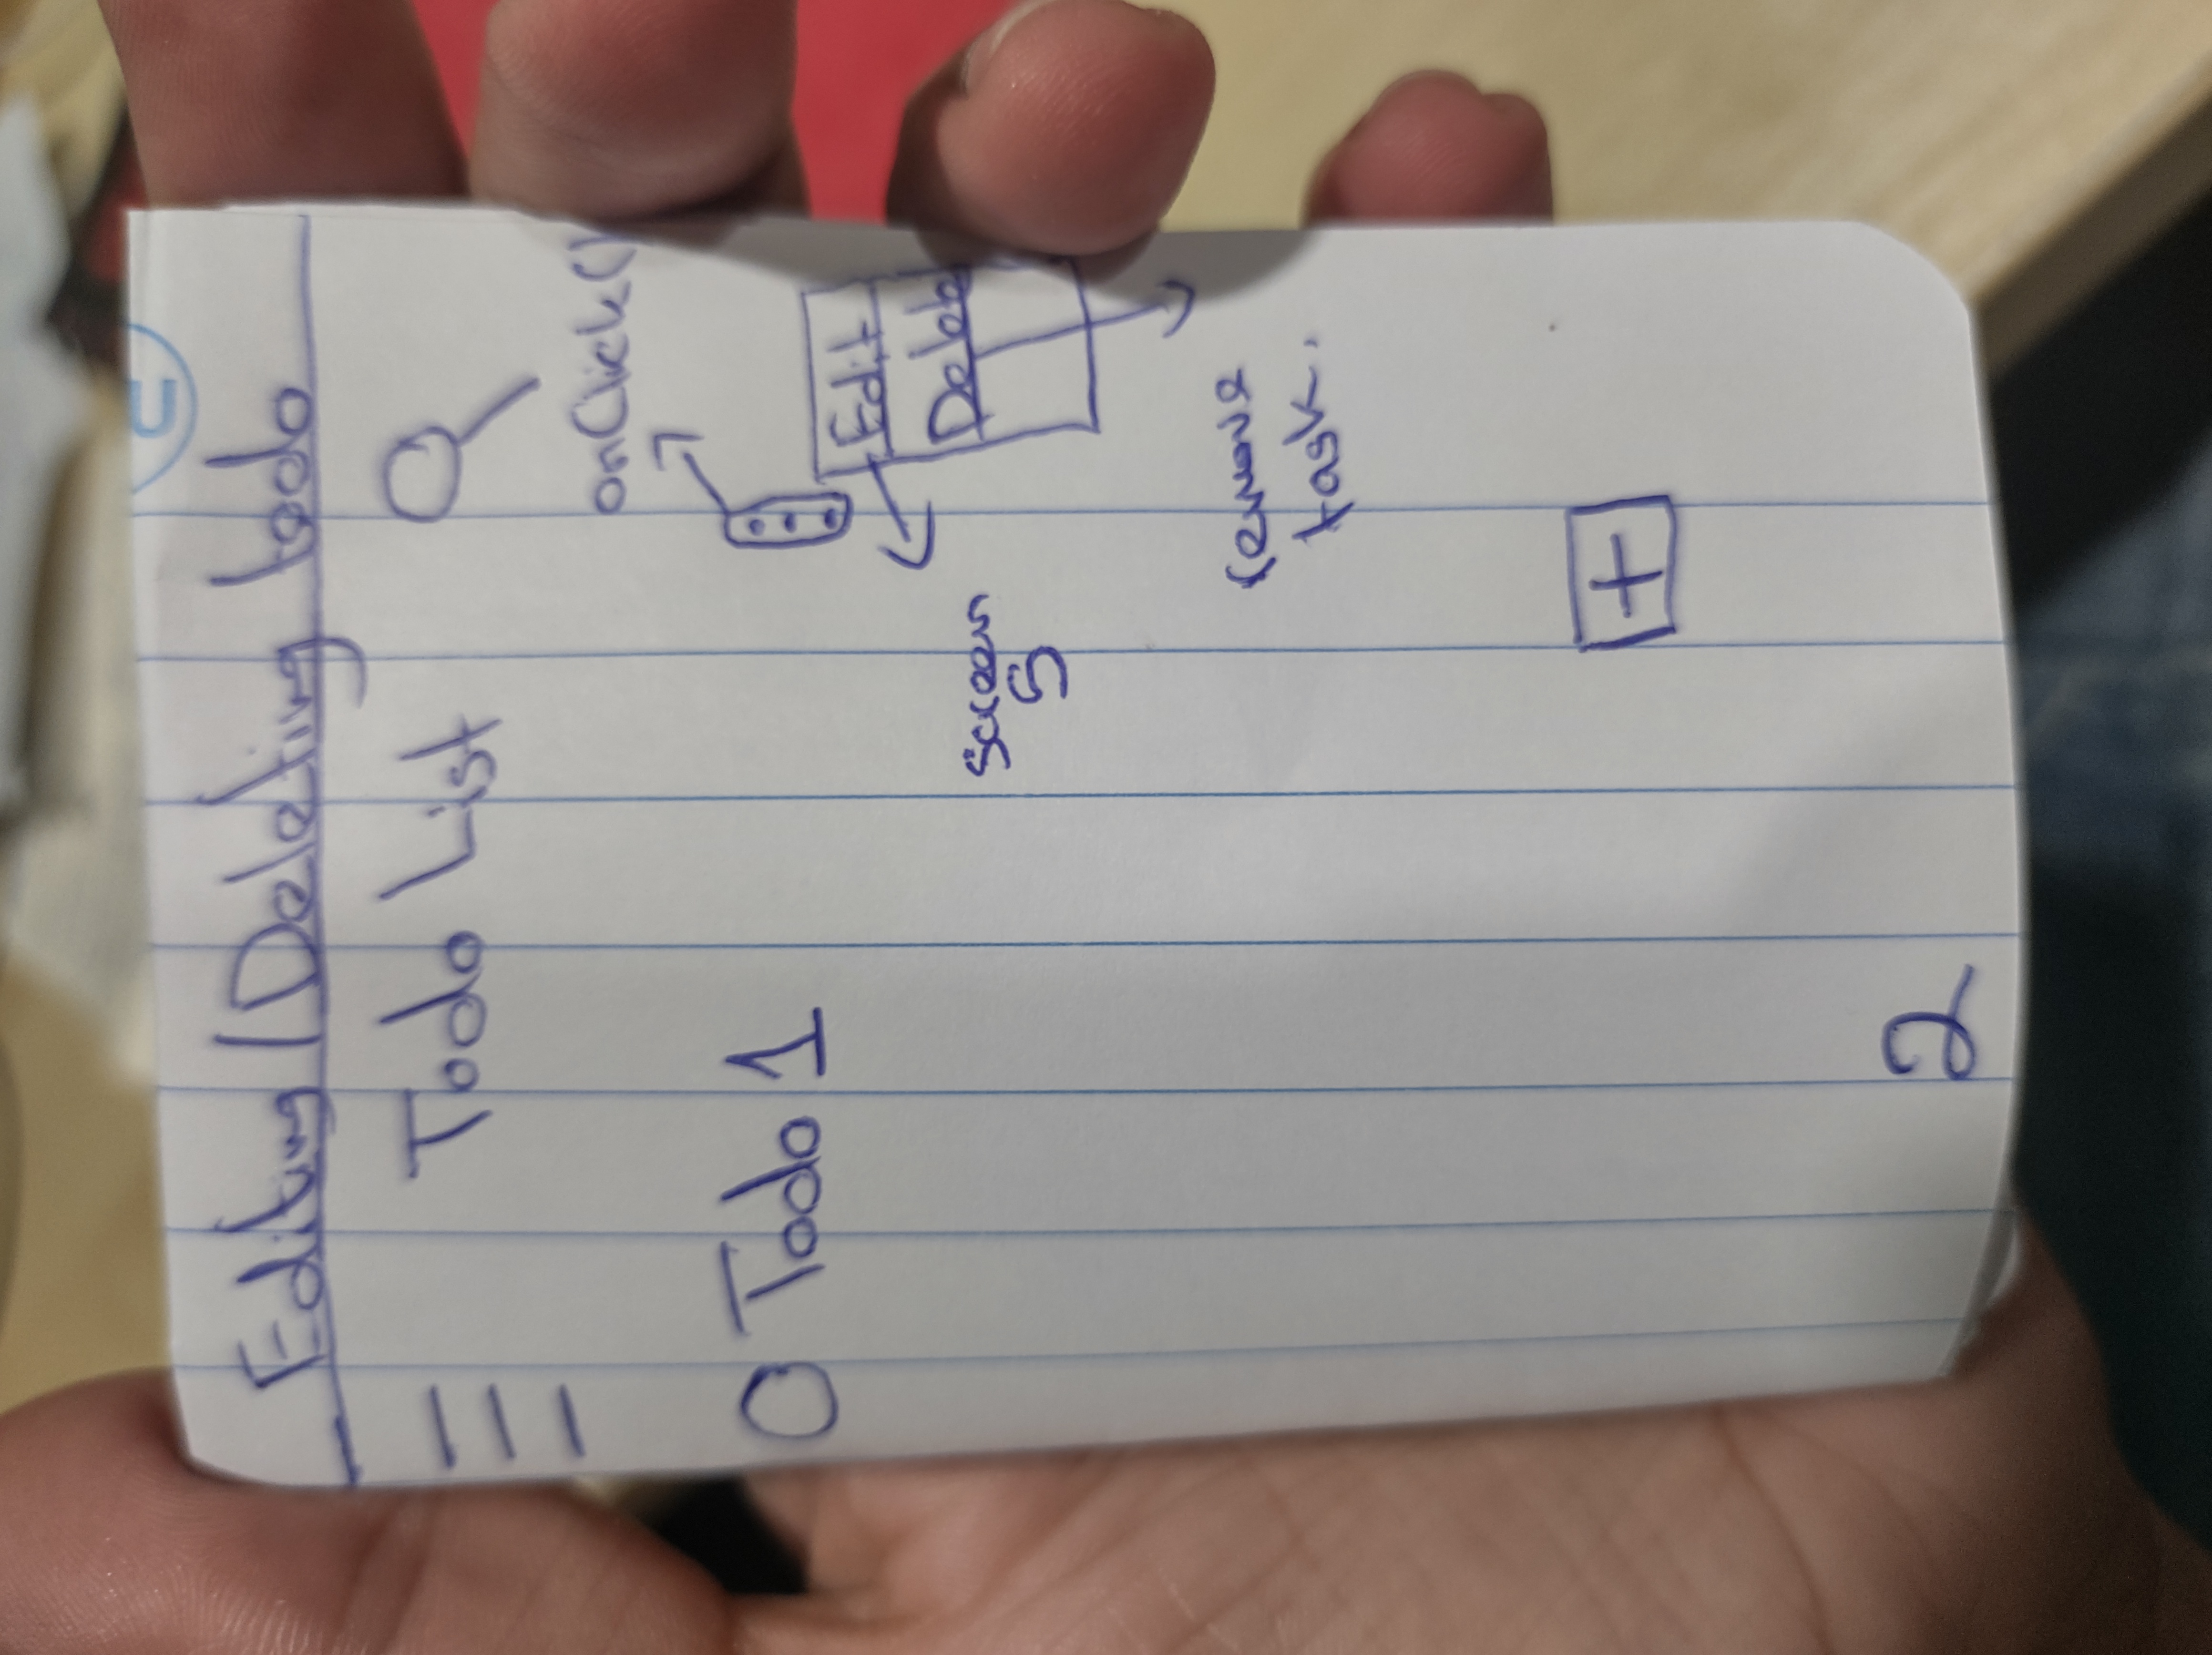 Editing/Deleting todo
Todo List
onClick()
Todo 1
Edit
Delete
Screen
5
remove
task.
+
2